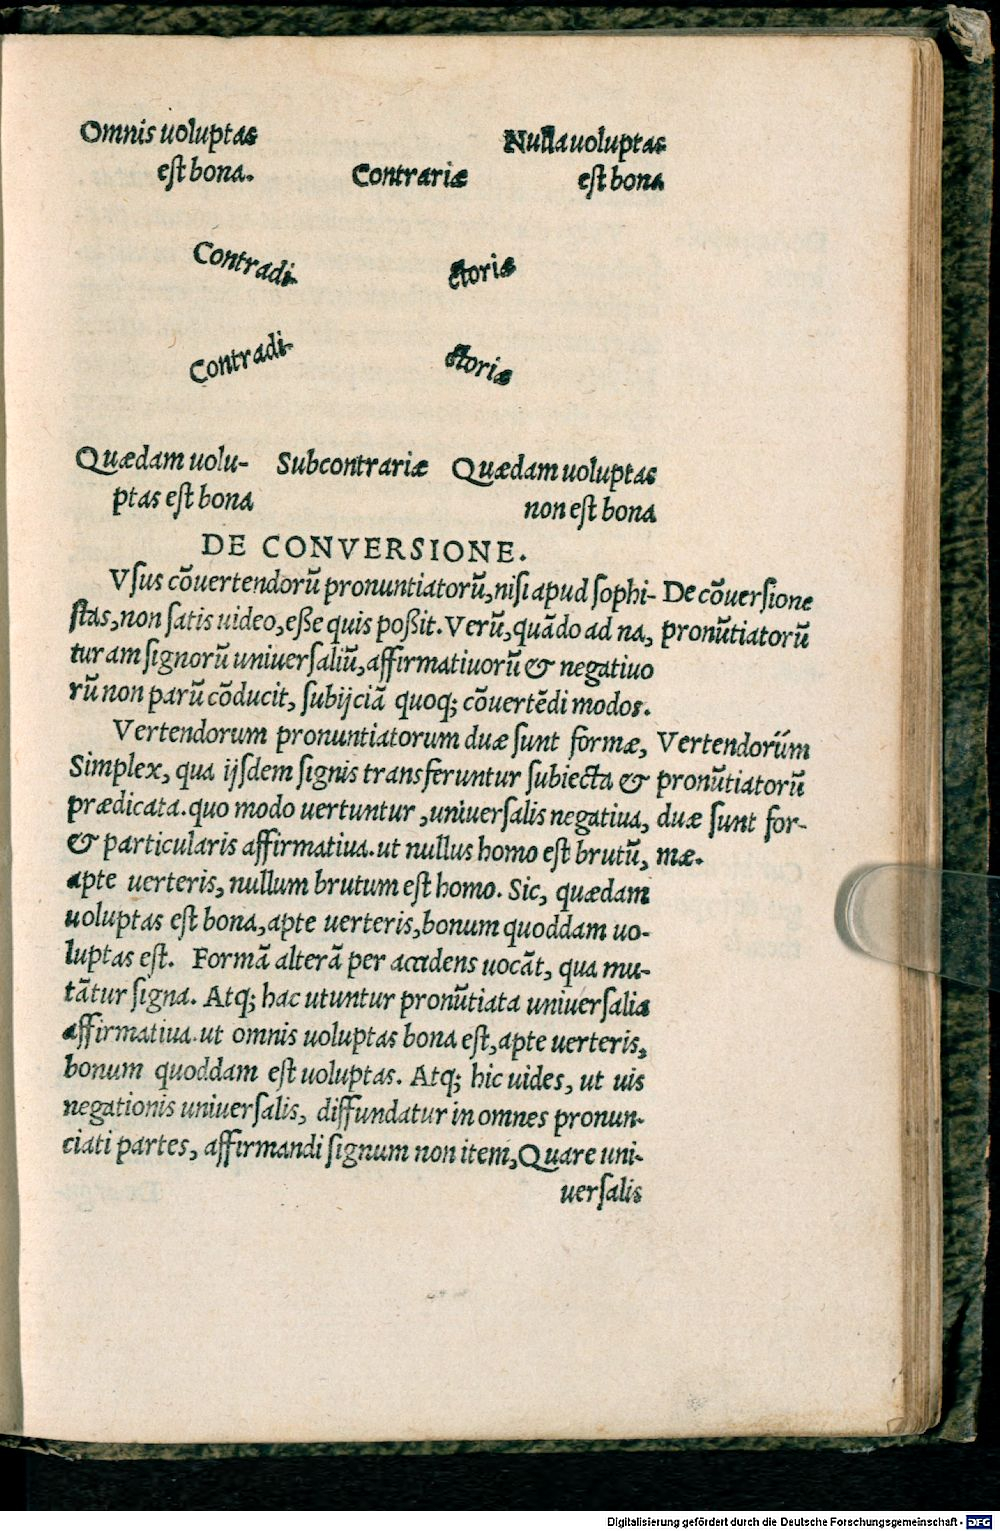 Omnis uoluptas
est bona.
Contrariæ
Nulla uoluptas
est bona
Contradi-
ctoriæ
Contradi-
ctoriæ
Quædam uolu-
ptas est bona
Subcontrariæ
Quædam uoluptas
non est bona
DE CONVERSIONE.
Vsus cōuertendorū pronuntiatorū, nisi apud sophi-
stas, non satis uideo, esse quis possit. Verū, quādo ad na,
turam signorū uniuersaliū, affirmatiuorū & negatiuo
rū non parū cōducit, subijciā quoq; cōuertēdi modos.
De cōuersione
pronūtiatorū
Vertendorum pronuntiatorum duæ sunt formæ,
Simplex, qua ijsdem signis transferuntur subiecta &
prædicata. quo modo uertuntur, uniuersalis negatiua,
& particularis affirmatiua. ut nullus homo est brutū,
apte uerteris, nullum brutum est homo. Sic, quædam
uoluptas est bona, apte uerteris, bonum quoddam uo-
luptas est. Formā alterā per accidens uocāt, qua mu-
tātur signa. Atq; hac utuntur pronūtiata uniuersalia
affirmatiua. ut omnis uoluptas bona est, apte uerteris,
bonum quoddam est uoluptas. Atq; hic uides, ut uis
negationis uniuersalis, diffundatur in omnes pronun-
ciati partes, affirmandi signum non item, Quare uni-
uersalis
Vertendorūm
pronūtiatorū
duæ sunt for-
mæ.
Digitalisierung gefördert durch die Deutsche Forschungsgemeinschaft - DFG